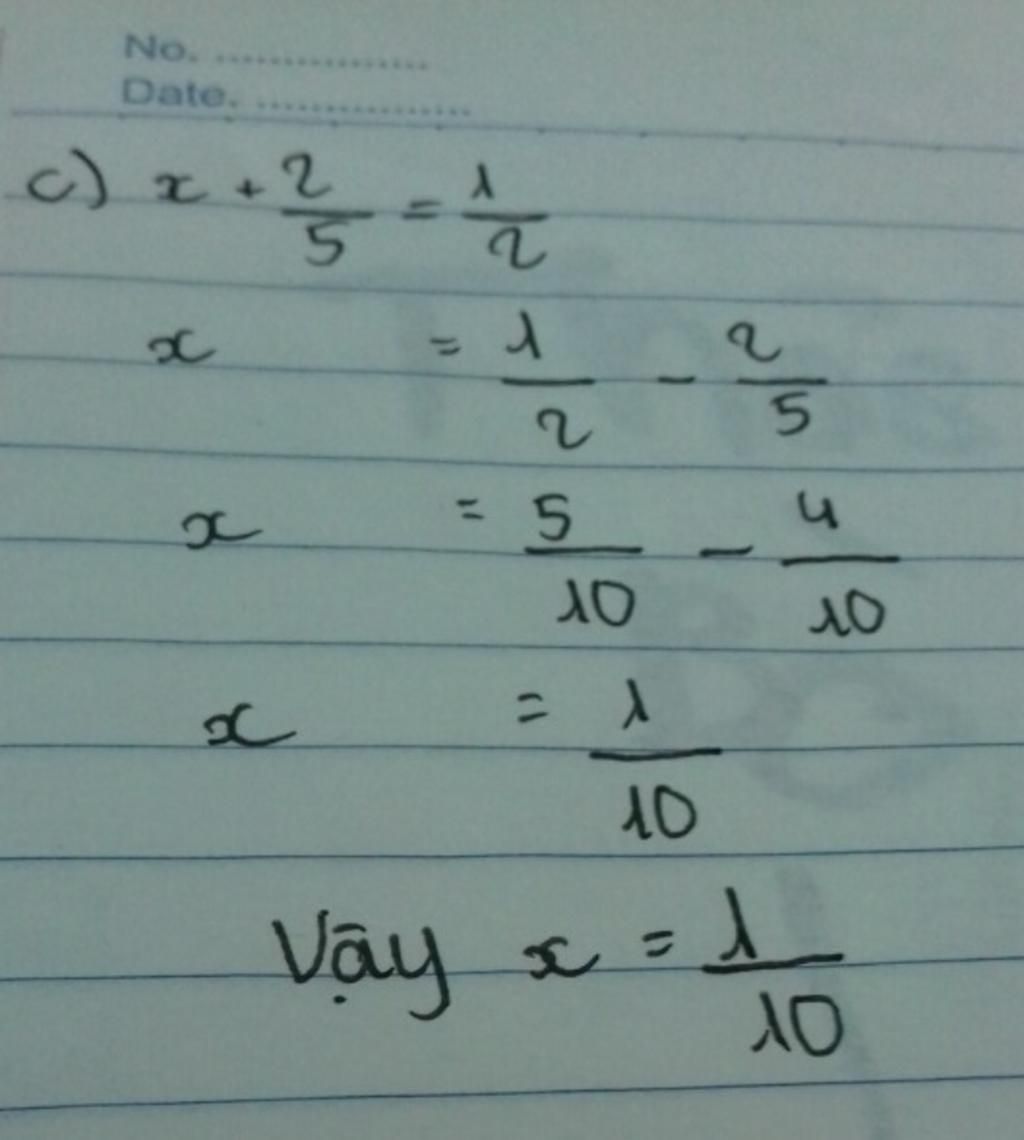 No. ................
Date. ................
c) x + 2/5 = 1/2
x = 1/2 - 2/5
x = 5/10 - 4/10
x = 1/10
Vậy x = 1/10